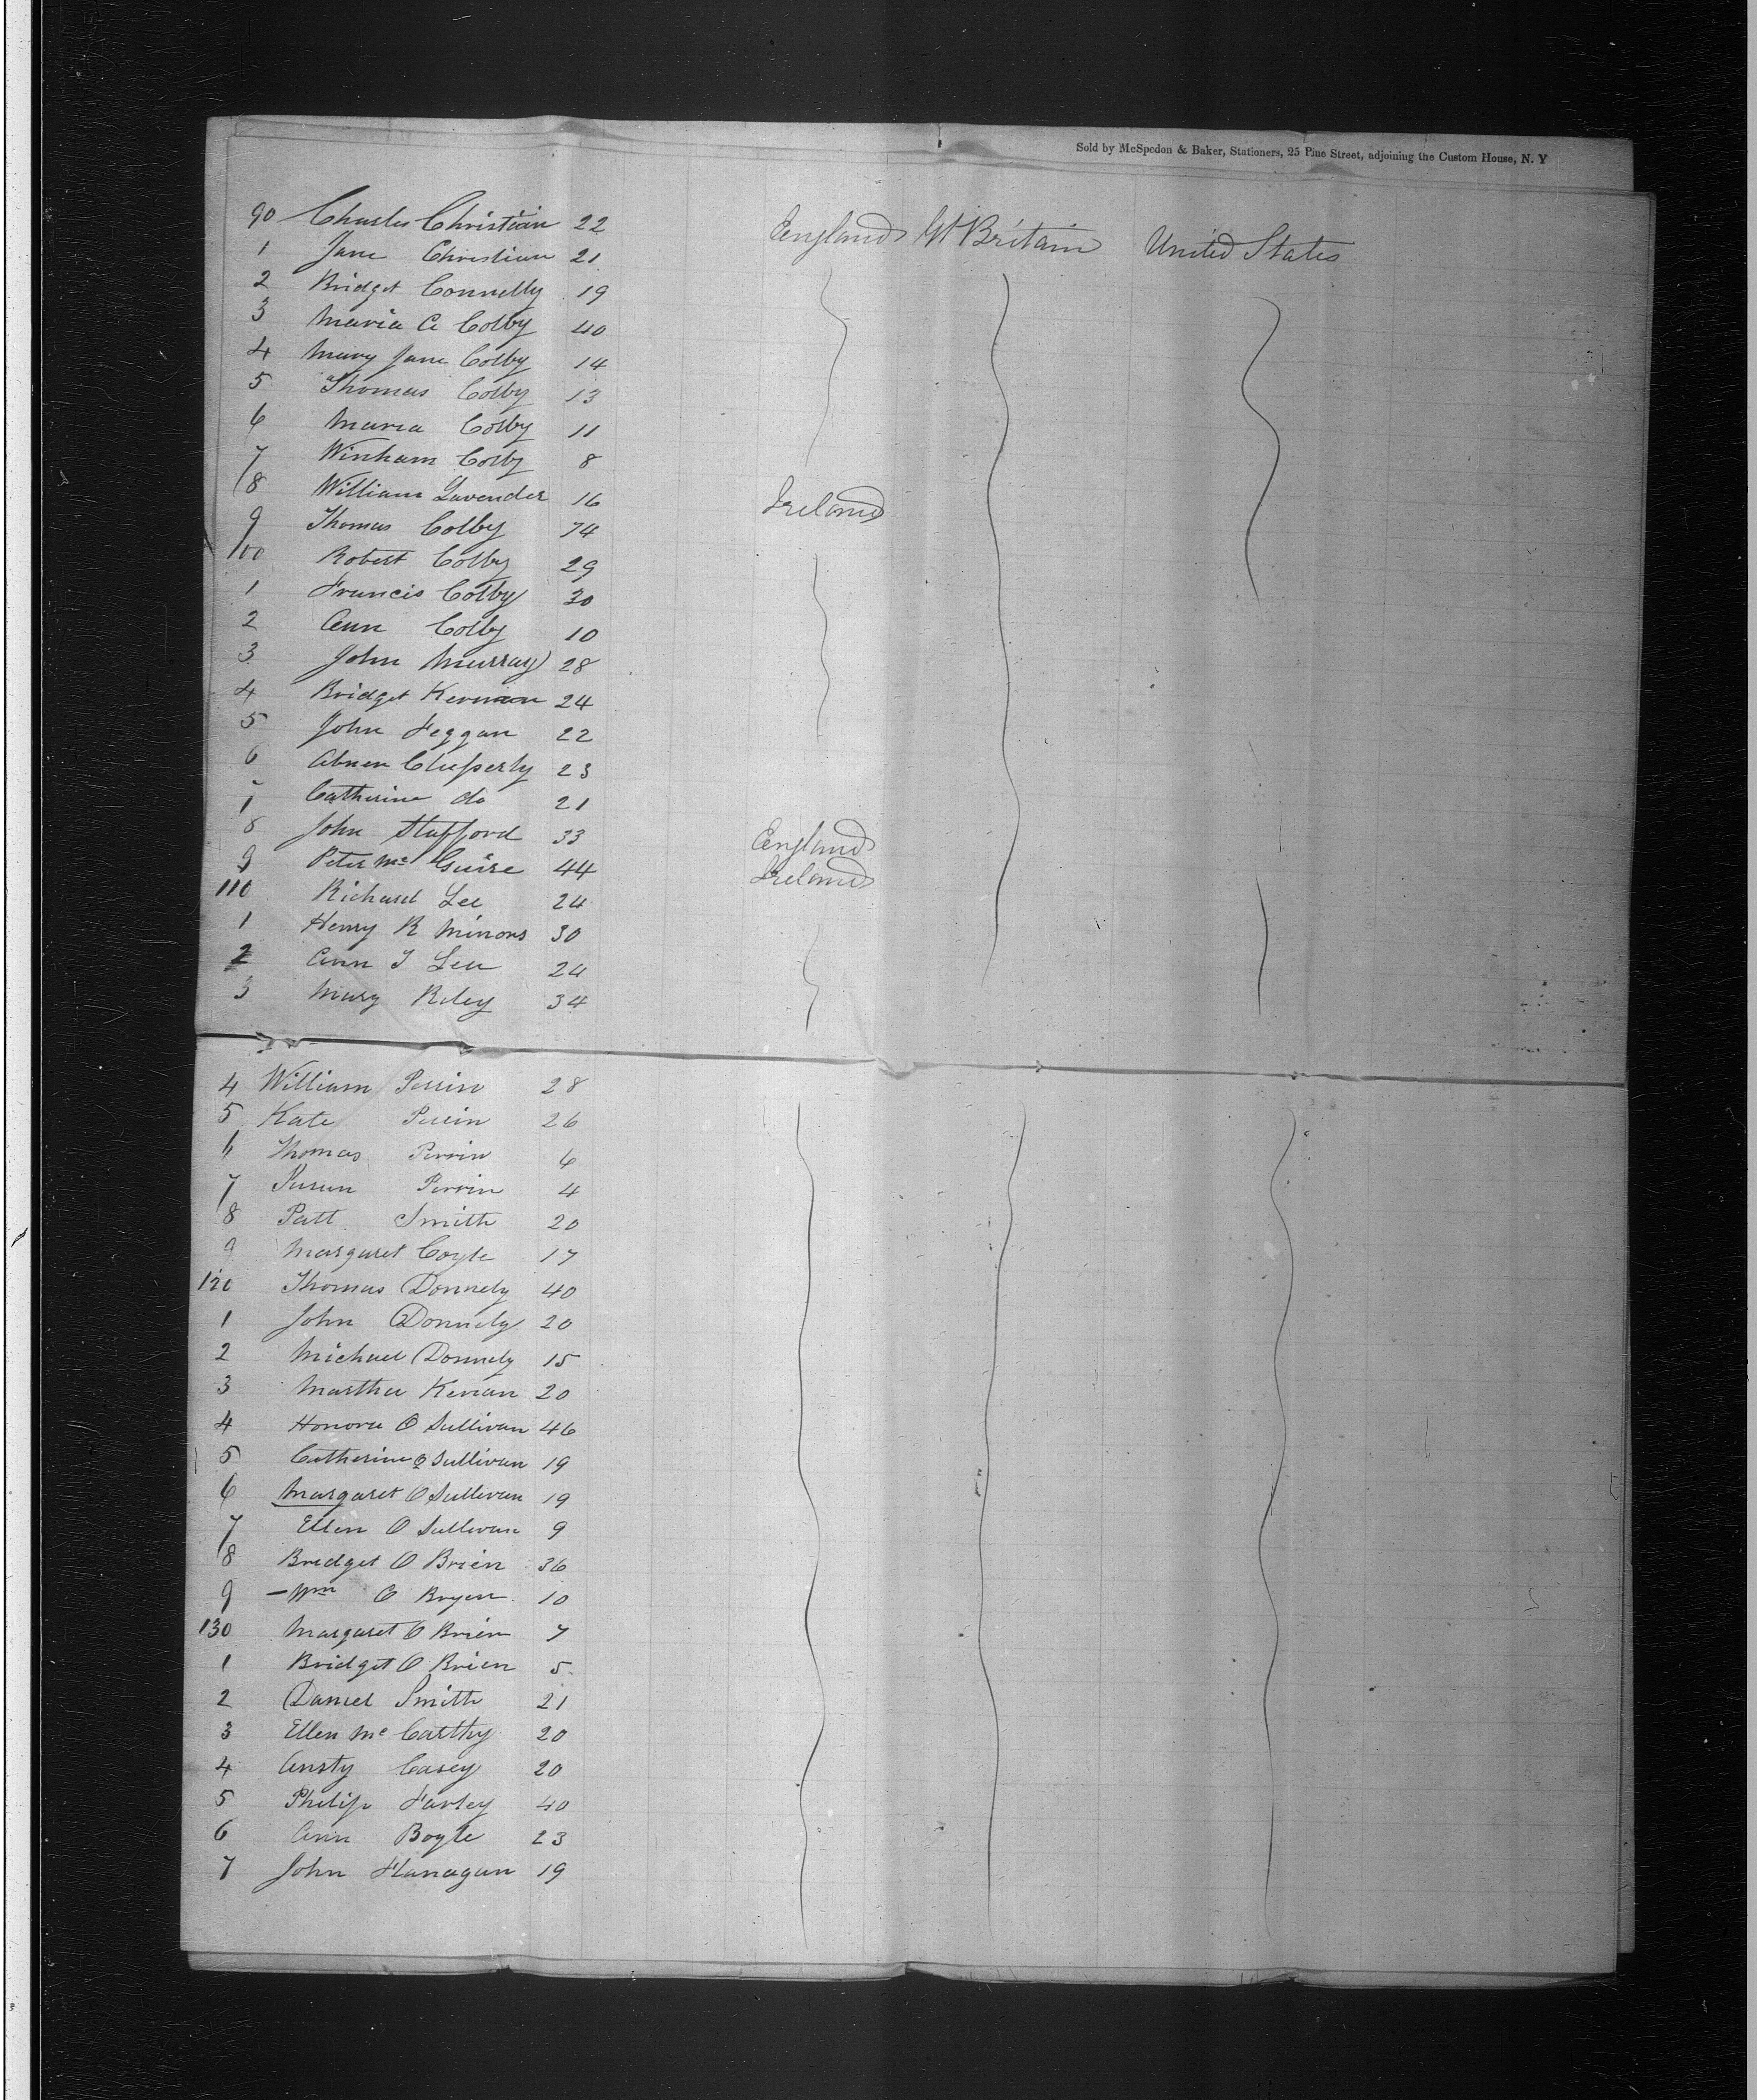 Sold by McSpedon & Baker, Stationers, 25 Pine Street, adjoining the Custom House, N. Y
90 Charles Christian 22 England Gt Britain United States
1 Jane Christian 21
2 Bridget Connelly 19
3 Maria A Colby 40
4 Mary Jane Colby 14
5 Thomas Colby 13
6 Maria Colby 11
7 Winham Colby 8
8 William Lavender 16 Ireland
9 Thomas Colby 74
100 Robert Colby 29
1 Francis Colby 30
2 Ann Colby 10
3 John Murray 28
4 Bridget Kernan 24
5 John Feggan 22
6 Abner 23
7 Catherine do 21
8 John Stafford 33 England
9 Peter Mc Guire 44 Ireland
110 Richard Lee 24
1 Henry R Minors 30
2 Ann J Lee 24
3 Mary Riley 34
4 William Perrin 28
5 Kate Perrin 26
6 Thomas Perrin 6
7 Susan Perrin 4
8 Patt Smith 20
9 Margaret Coyle 17
120 Thomas Donnely 40
1 John Donnely 20
2 Michael Donnely 15
3 Martha Kenan 20
4 Honora O Sullivan 46
5 Catherine O Sullivan 19
6 Margaret O Sullivan 19
7 Ellen O Sullivan 9
8 Bridget O Brien 36
9 Wm O Bryen 10
130 Margaret O Brien 7
1 Bridget O Brien 5
2 Daniel Smith 21
3 Ellen Mc Carthy 20
4 Ansty Casey 20
5 Philip Farley 40
6 Ann Boyle 23
7 John Flanagan 19